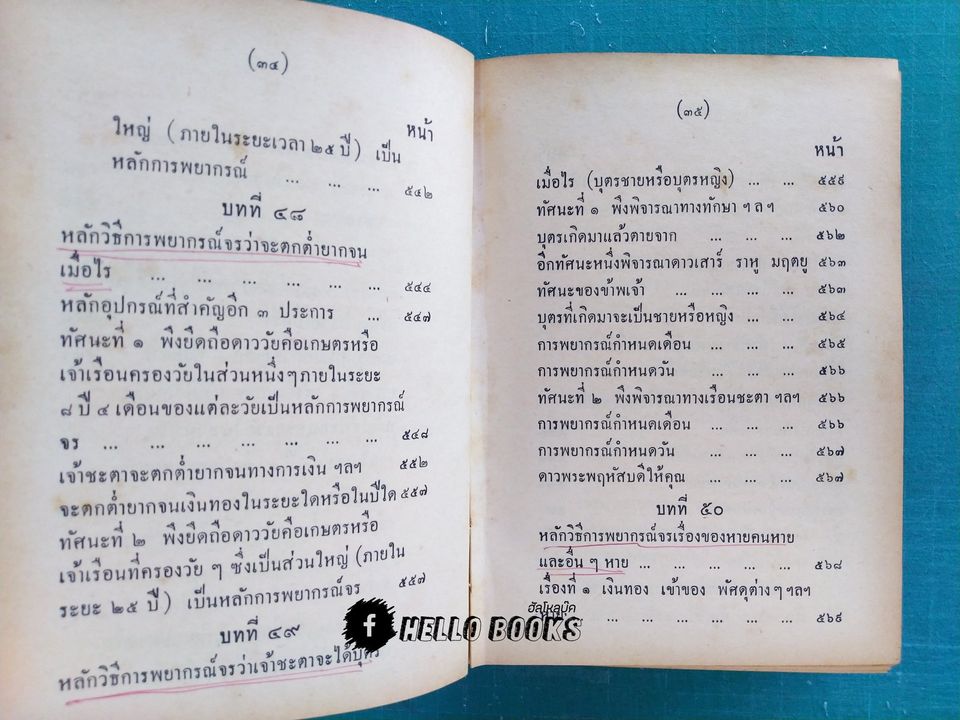 (๓๔)
หน้า
ใหญ่ (ภายในระยะเวลา ๒๕ ปี) เป็น
หลักการพยากรณ์ ... ... ... ๕๔๒
บทที่ ๔๘
หลักวิธีการพยากรณ์จรว่าจะตกต่ำยากจน
เมื่อไร ... ... ... ... ... ... ๕๔๔
หลักอุปกรณ์ที่สำคัญอีก ๓ ประการ ... ๕๔๗
ทัศนะที่ ๑ พึงยึดถือดาววัยคือเกษตรหรือ
เจ้าเรือนครองวัยในส่วนหนึ่งๆภายในระยะ
๘ ปี ๔ เดือนของแต่ละวัยเป็นหลักการพยากรณ์
จร ... ... ... ... ... ... ... ๕๔๘
เจ้าชะตาจะตกต่ำยากจนทางการเงิน ฯลฯ ๕๕๒
จะตกต่ำยากจนเงินทองในระยะใดหรือในปีใด ๕๕๗
ทัศนะที่ ๒ พึงยึดถือดาววัยคือเกษตรหรือ
เจ้าเรือนที่ครองวัย ๆ ซึ่งเป็นส่วนใหญ่ (ภายใน
ระยะ ๒๕ ปี) เป็นหลักการพยากรณ์จร ๕๕๗
บทที่ ๔๙
หลักวิธีการพยากรณ์จรว่าเจ้าชะตาจะได้บุตร
(๓๕)
หน้า
เมื่อไร (บุตรชายหรือบุตรหญิง) ... ... ๕๕๙
ทัศนะที่ ๑ พึงพิจารณาทางทักษา ฯ ล ฯ ๕๖๐
บุตรเกิดมาแล้วตายจาก ... ... ... ๕๖๒
อีกทัศนะหนึ่งพิจารณาดาวเสาร์ ราหู มฤตยู ๕๖๓
ทัศนะของข้าพเจ้า ... ... ... ... ๕๖๓
บุตรที่เกิดมาจะเป็นชายหรือหญิง ... ... ๕๖๔
การพยากรณ์กำหนดเดือน ... ... ... ๕๖๕
การพยากรณ์กำหนดวัน ... ... ... ๕๖๖
ทัศนะที่ ๒ พึงพิจารณาทางเรือนชะตา ฯลฯ ๕๖๖
การพยากรณ์กำหนดเดือน ... ... ... ๕๖๖
การพยากรณ์กำหนดวัน ... ... ... ๕๖๗
ดาวพระพฤหัสบดีให้คุณ ... ... ... ๕๖๗
บทที่ ๕๐
หลักวิธีการพยากรณ์จรเรื่องของหายคนหาย
และอื่น ๆ หาย ... ... ... ... ... ๕๖๘
เรื่องที่ ๑ เงินทอง เข้าของ พัศดุต่างๆ ฯลฯ
หาย ... ... ... ... ... ... ๕๖๙
ฮัลโหลบุ๊ค
f HELLO BOOKS